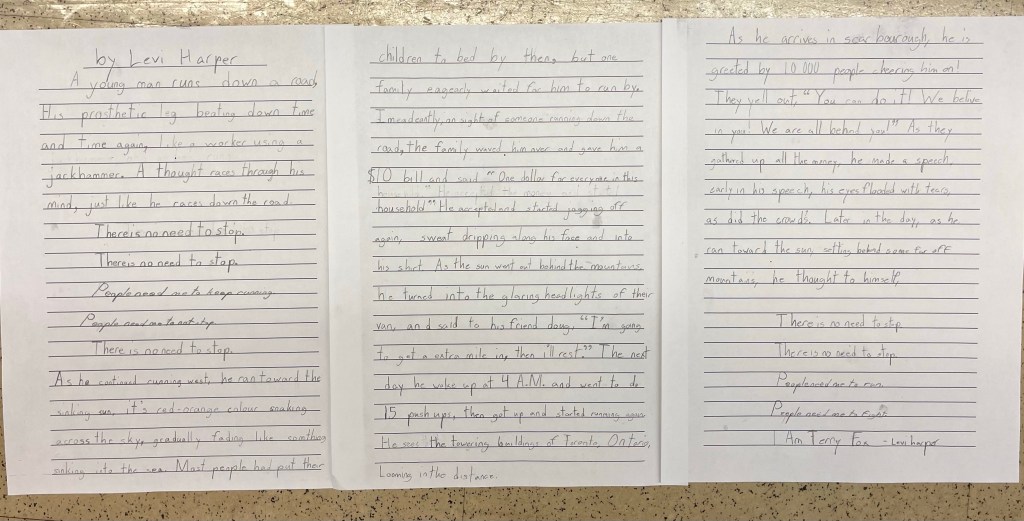 by Levi Harper
A young man runs down a road,
His prosthetic leg beating down time
and time again, like a worker using a
jackhammer. A thought races through his
mind, just like he races down the road.
There is no need to stop.
There is no need to stop.
People need me to keep running
People need me to not stop
There is no need to stop.
As he continued running west, he ran toward the
sinking sun, it's red-orange colour snaking
across the sky, gradually fading like something
sinking into the sea. Most people had put their
children to bed by then, but one
family eagearly waited for him to run by.
Imeadeantly, on sight of someone running down the
road, the family waved him over and gave him a
$10 bill and said "One dollar for everyone in this
household" He accepted and started jogging off
again, sweat dripping along his face and into
his shirt. As the sun went out behind the mountains
he turned into the glaring headlights of their
van, and said to his friend doug, "I'm going
to get a extra mile in, then i'll rest." The next
day he woke up at 4 A.M. and went to do
15 push ups, then got up and started running again
He sees the towering buildings of Toronto, Ontario,
Looming in the distance.
As he arrives in scar bourough, he is
greeted by 10 000 people cheering him on!
They yell out, "You can do it! We believe
in you! We are all behind you!" As they
gathered up all the money, he made a speech,
early in his speech, his eyes flooded with tears
as did the crowd's. Later in the day, as he
ran toward the sun, setting behind some far off
mountains, he thought to himself,
There is no need to stop
There is no need to stop.
People need me to run.
People need me to fight
I Am Terry Fox - Levi harper